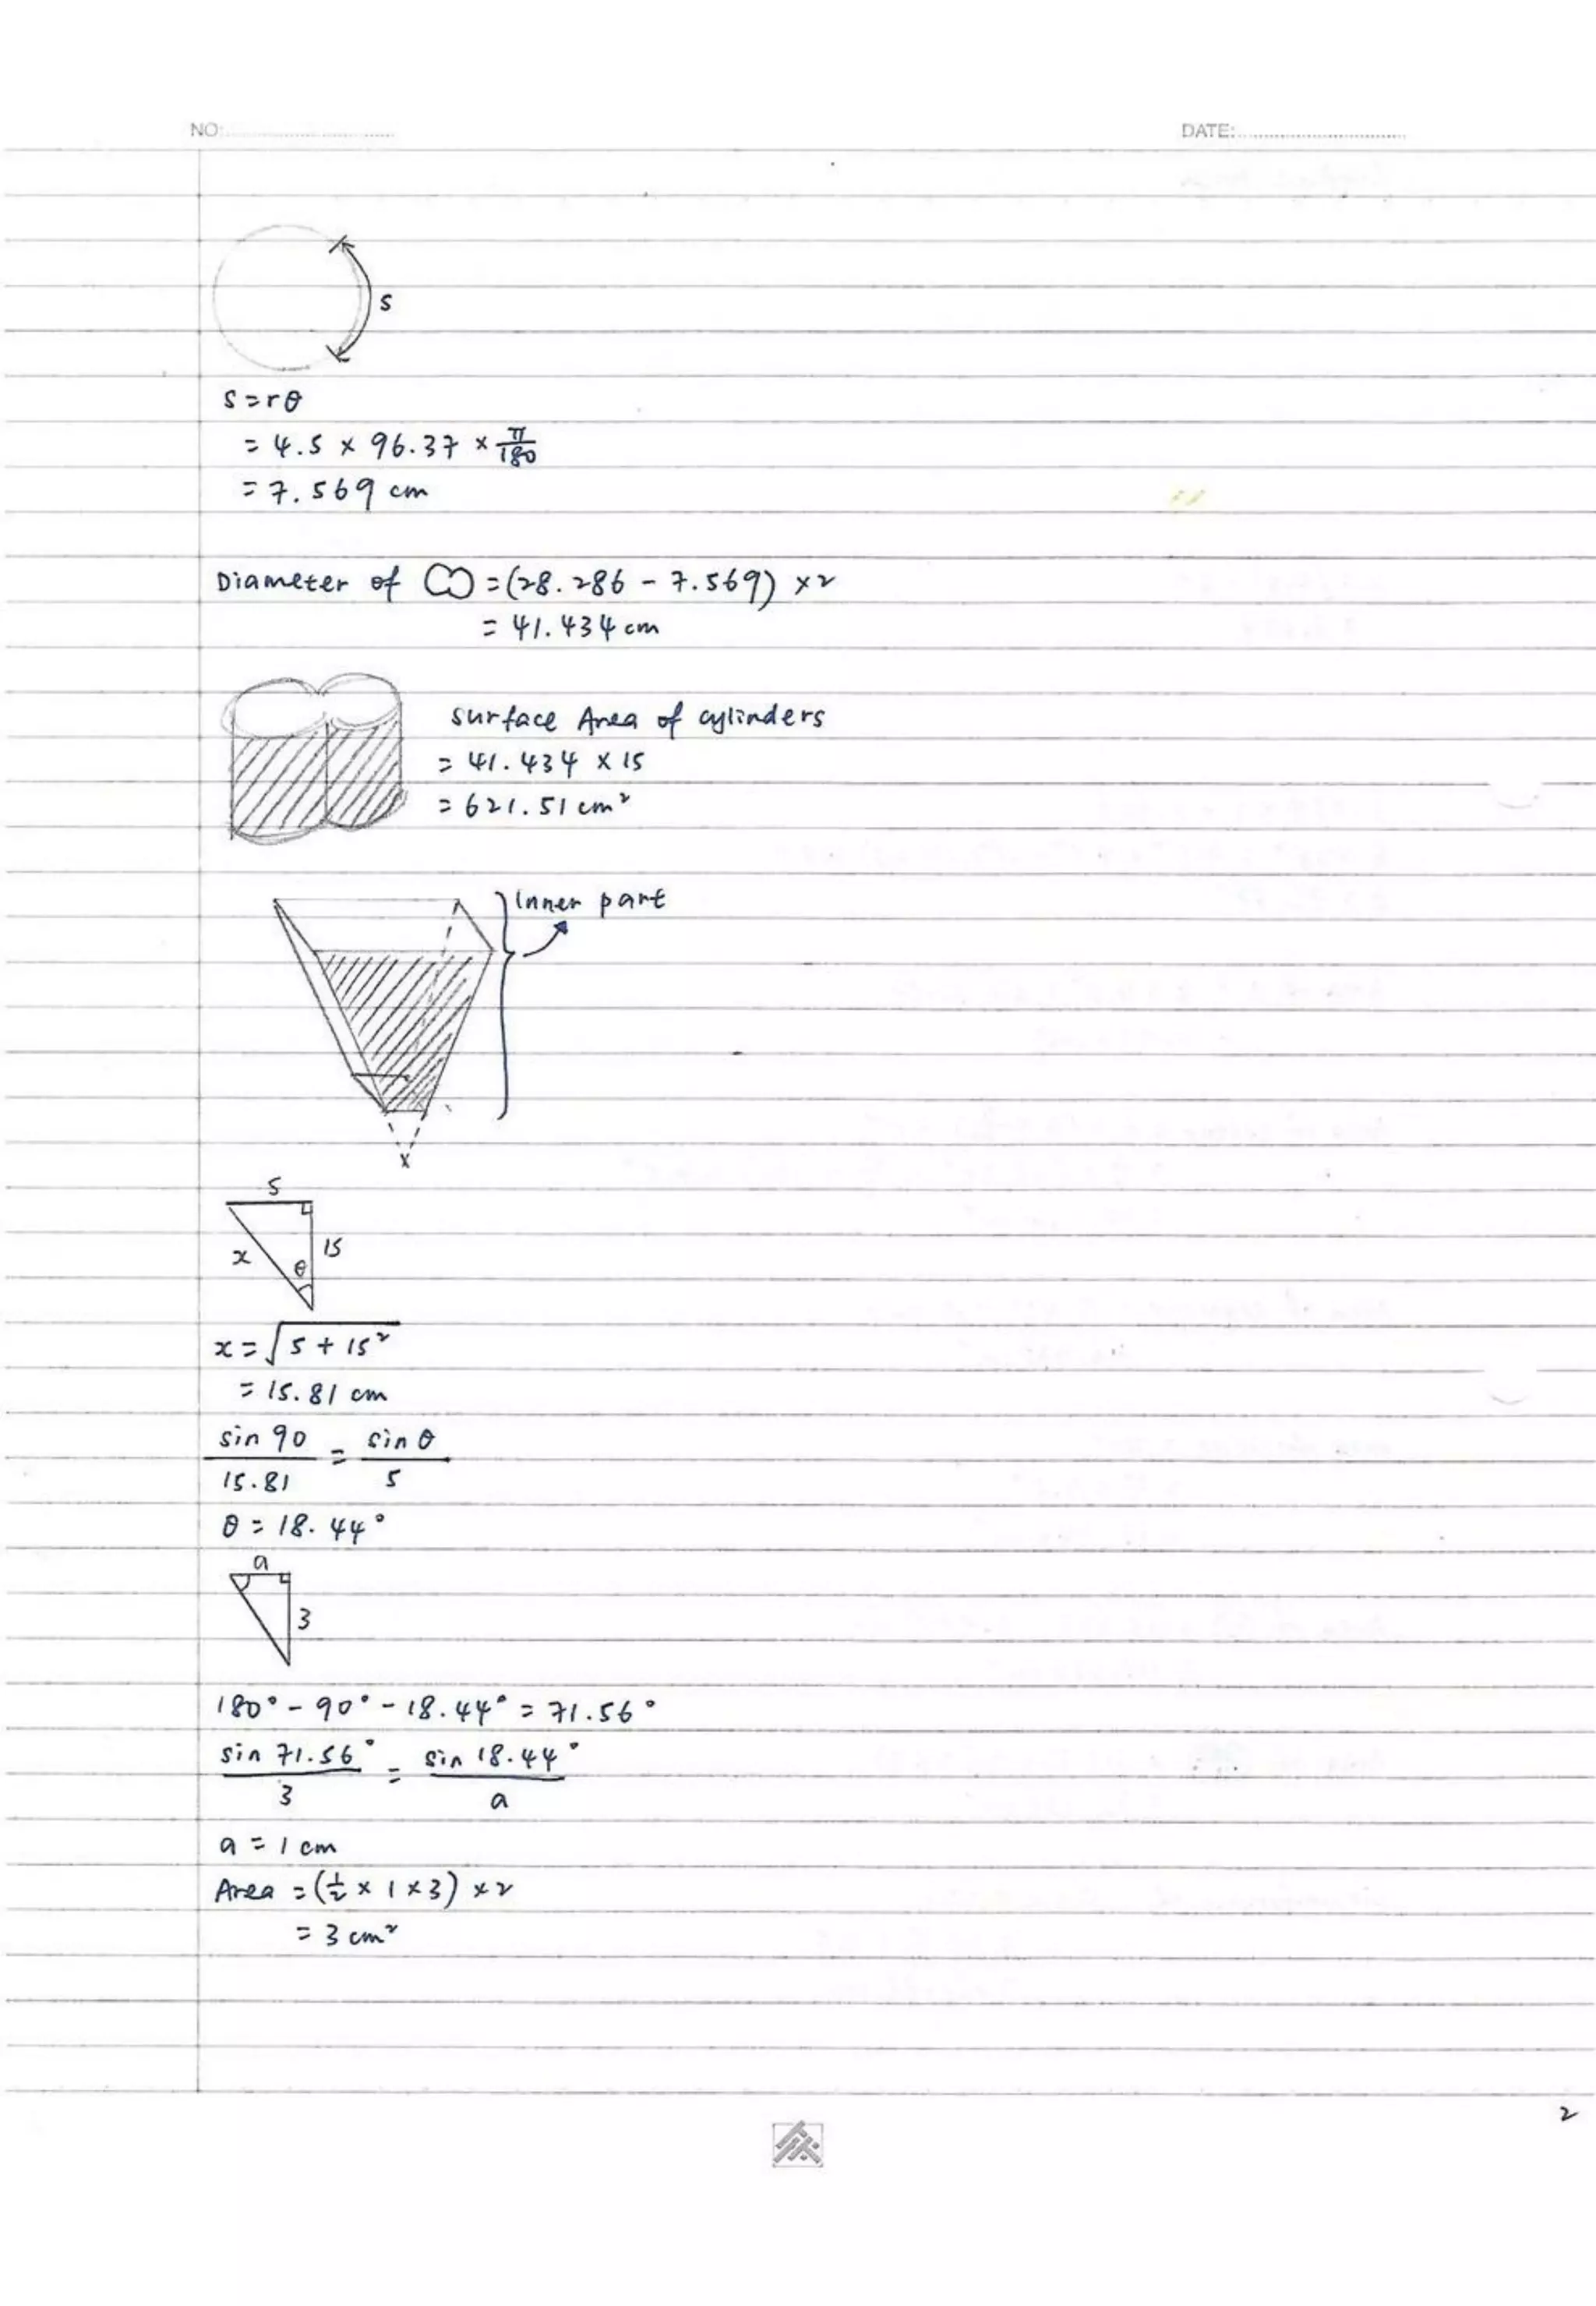 NO:
DATE:
s
s = rθ
= 4.5 × 96.37 × π/180
= 7.569 cm
Diameter of = (28.286 - 7.569) × 2
= 41.434 cm
surface Area of cylinders
= 41.434 × 15
= 621.51 cm²
Inner part
x
5
x
θ
15
x = √5 + 15²
= 15.81 cm
sin 90/15.81 = sin θ/5
θ = 18.44°
a
3
180° - 90° - 18.44° = 71.56°
sin 71.56°/3 = sin 18.44°/a
a = 1 cm
Area = (1/2 × 1 × 3) × 2
= 3 cm²
2